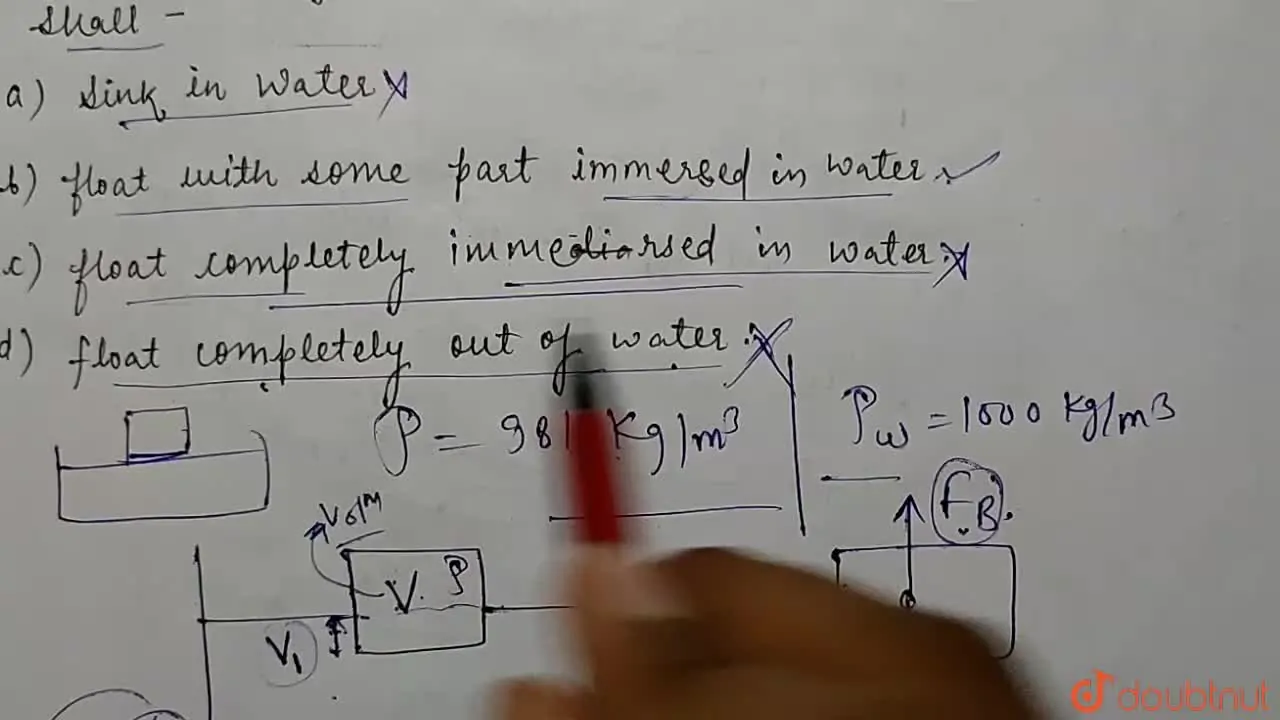 Shall -
a) Sink in Water
b) float with some part immersed in water
c) float completely immersed in water
d) float completely out of water.
ρ = 981 Kg/m³
ρw = 1000 Kg/m³
FB.
V. ρ
V₁
doubtnut